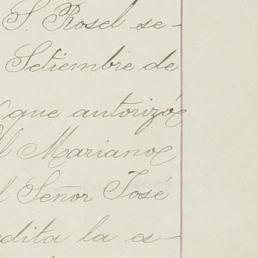 S. Rosel se-
Setiembre de
que autorizó
Mariano
Señor José
dita la es-